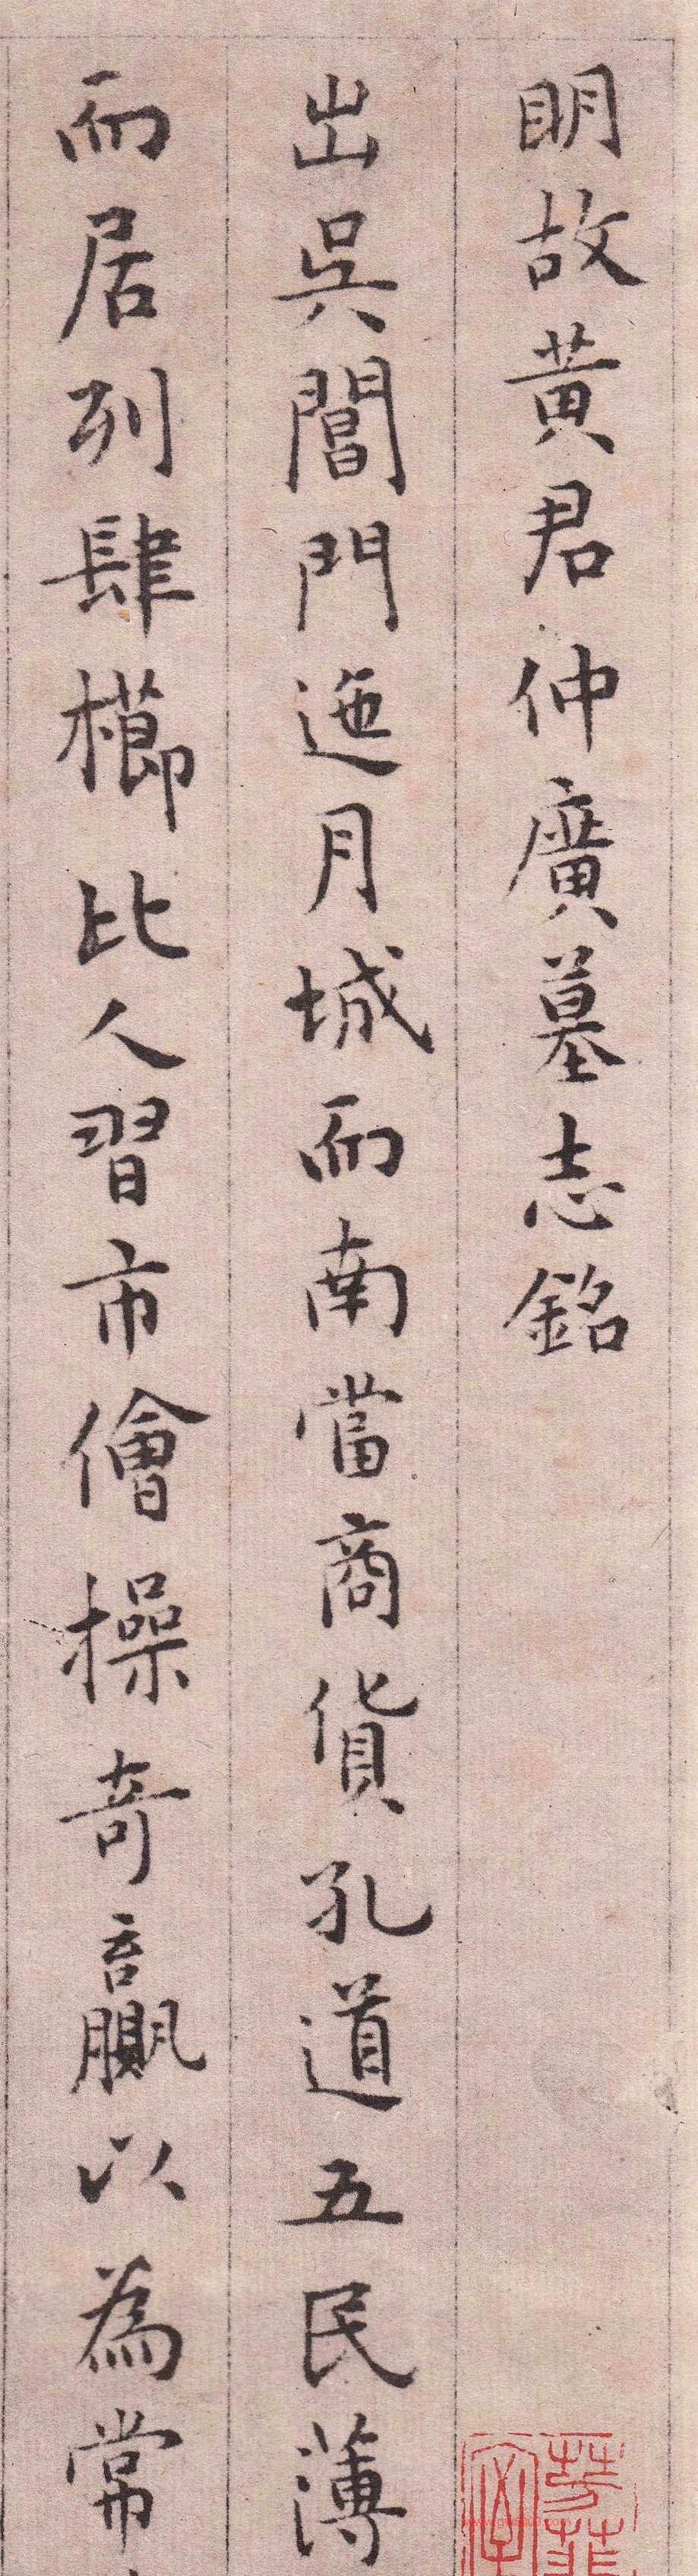 明故黄君仲廣墓志銘
出吳閶門迤月城而南當商貨孔道五民薄
而居列肆櫛比人習市儈操奇贏以為常